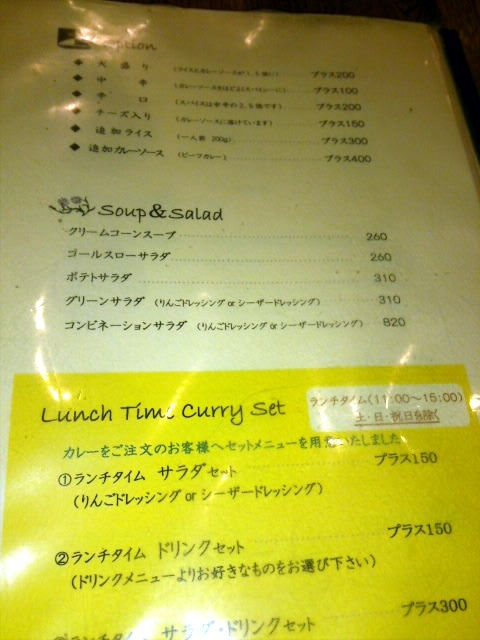 Option
◆ 大盛り (ライスとカレーソースが1.5倍に) プラス200
◆ 中辛 (カレーソースをほどよくスパイシーに) プラス100
◆ 辛口 (スパイスは中辛の2.5倍です) プラス200
◆ チーズ入り (カレーソースに溶けています) プラス150
◆ 追加ライス (一人前 200g) プラス300
◆ 追加カレーソース (ビーフカレー) プラス400
Soup&Salad
クリームコーンスープ 260
ゴールスローサラダ 260
ポテトサラダ 310
グリーンサラダ (りんごドレッシング or シーザードレッシング) 310
コンビネーションサラダ (りんごドレッシング or シーザードレッシング) 820
Lunch Time Curry Set
ランチタイム(11:00～15:00)
土・日・祝日を除く
カレーをご注文のお客様へセットメニューを用意いたしました
①ランチタイム サラダセット プラス150
(りんごドレッシング or シーザードレッシング)
②ランチタイム ドリンクセット プラス150
(ドリンクメニューよりお好きなものをお選び下さい)
ランチタイム サラダ・ドリンクセット プラス300